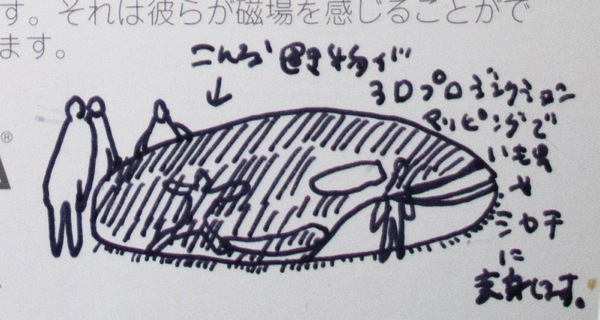 す。それは彼らが磁場を感じることがで
ます。
®
こんな置き物が
3Dプロジェクション
マッピングで
いも虫
や
ミカヅキ
に
変身します。